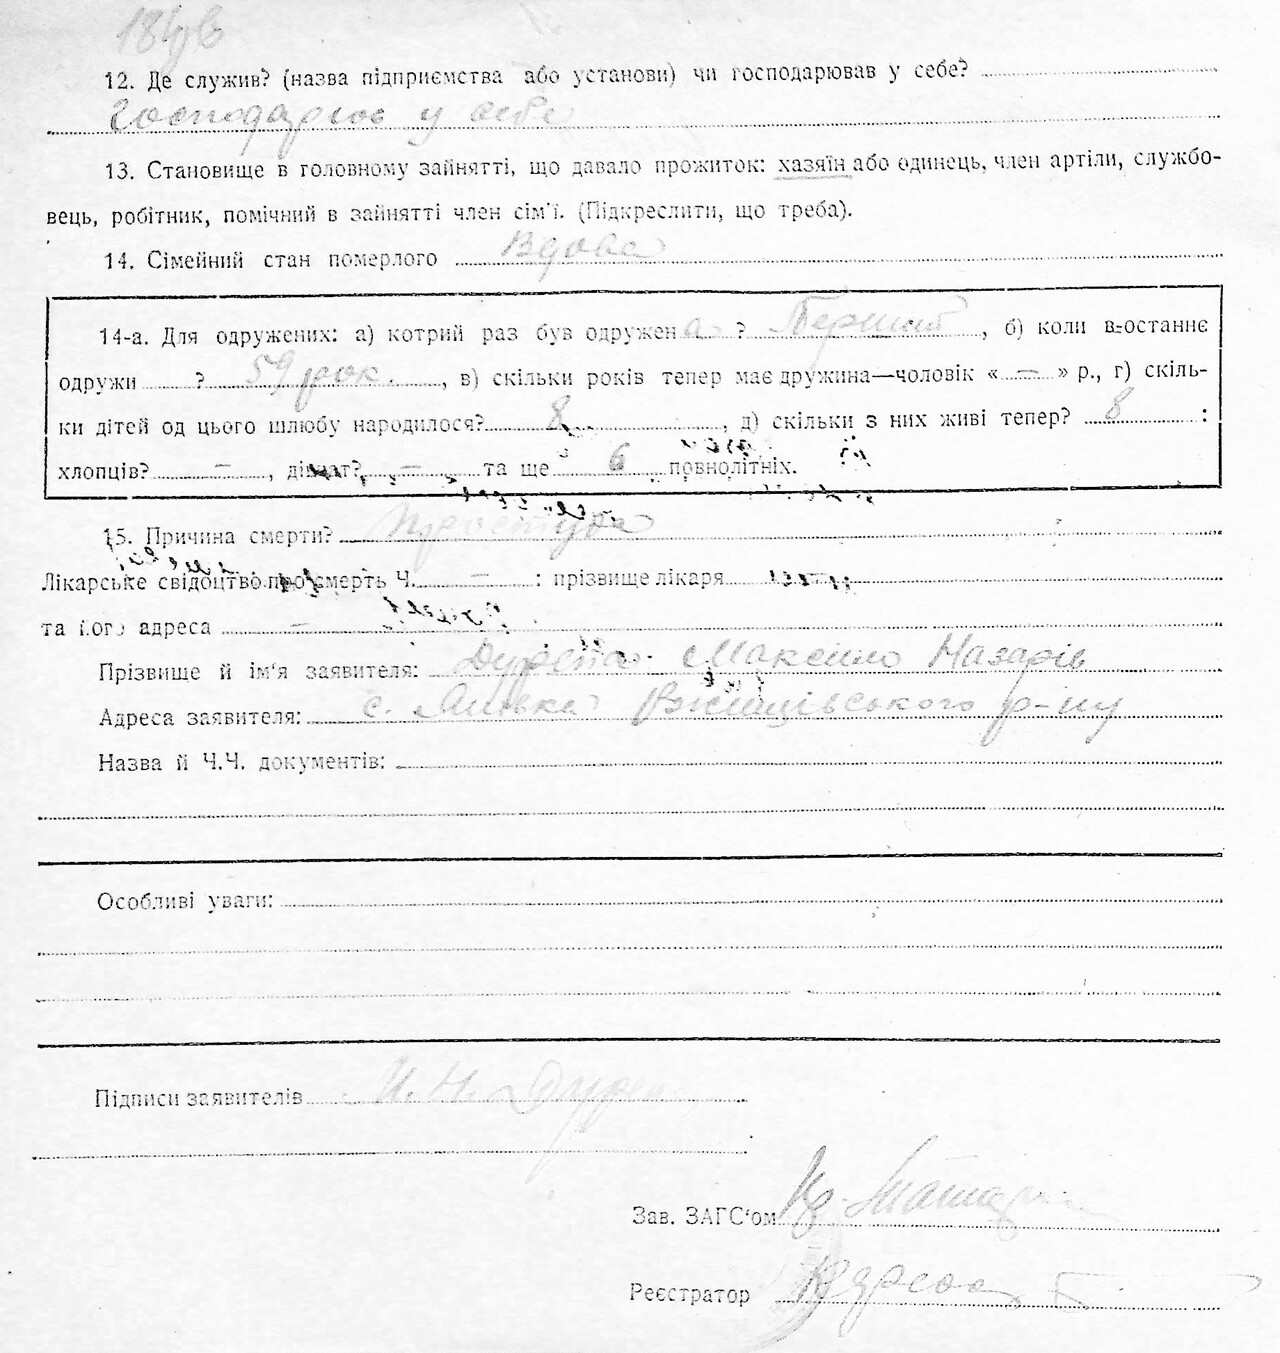 12. Де служив? (назва підприємства або установи) чи господарював у себе?
Господарює у себе
13. Становище в головному зайнятті, що давало прожиток: хазяїн або одинець, член артіли, службо-
вець, робітник, помічний в зайнятті член сім'ї. (Підкреслити, що треба).
14. Сімейний стан померлого Вдова
14-а. Для одружених: а) котрий раз був одружена? Перший, б) коли востаннє
одружи ? 59 рок., в) скільки років тепер має дружина—чоловік « — » р., г) скіль-
ки дітей од цього шлюбу народилося? 8, д) скільки з них живі тепер? 8 :
хлопців? —, дівчат? — та ще 6 повнолітніх.
15. Причина смерти? Простуда
Лікарське свідоцтво про смерть Ч. — : прізвище лікаря
та його адреса —
Прізвище й ім'я заявителя: Максимо Назарів
Адреса заявителя: с. р-ну
Назва й Ч.Ч. документів:
Особливі уваги:
Підписи заявителів
Зав. ЗАГС'ом
Реєстратор